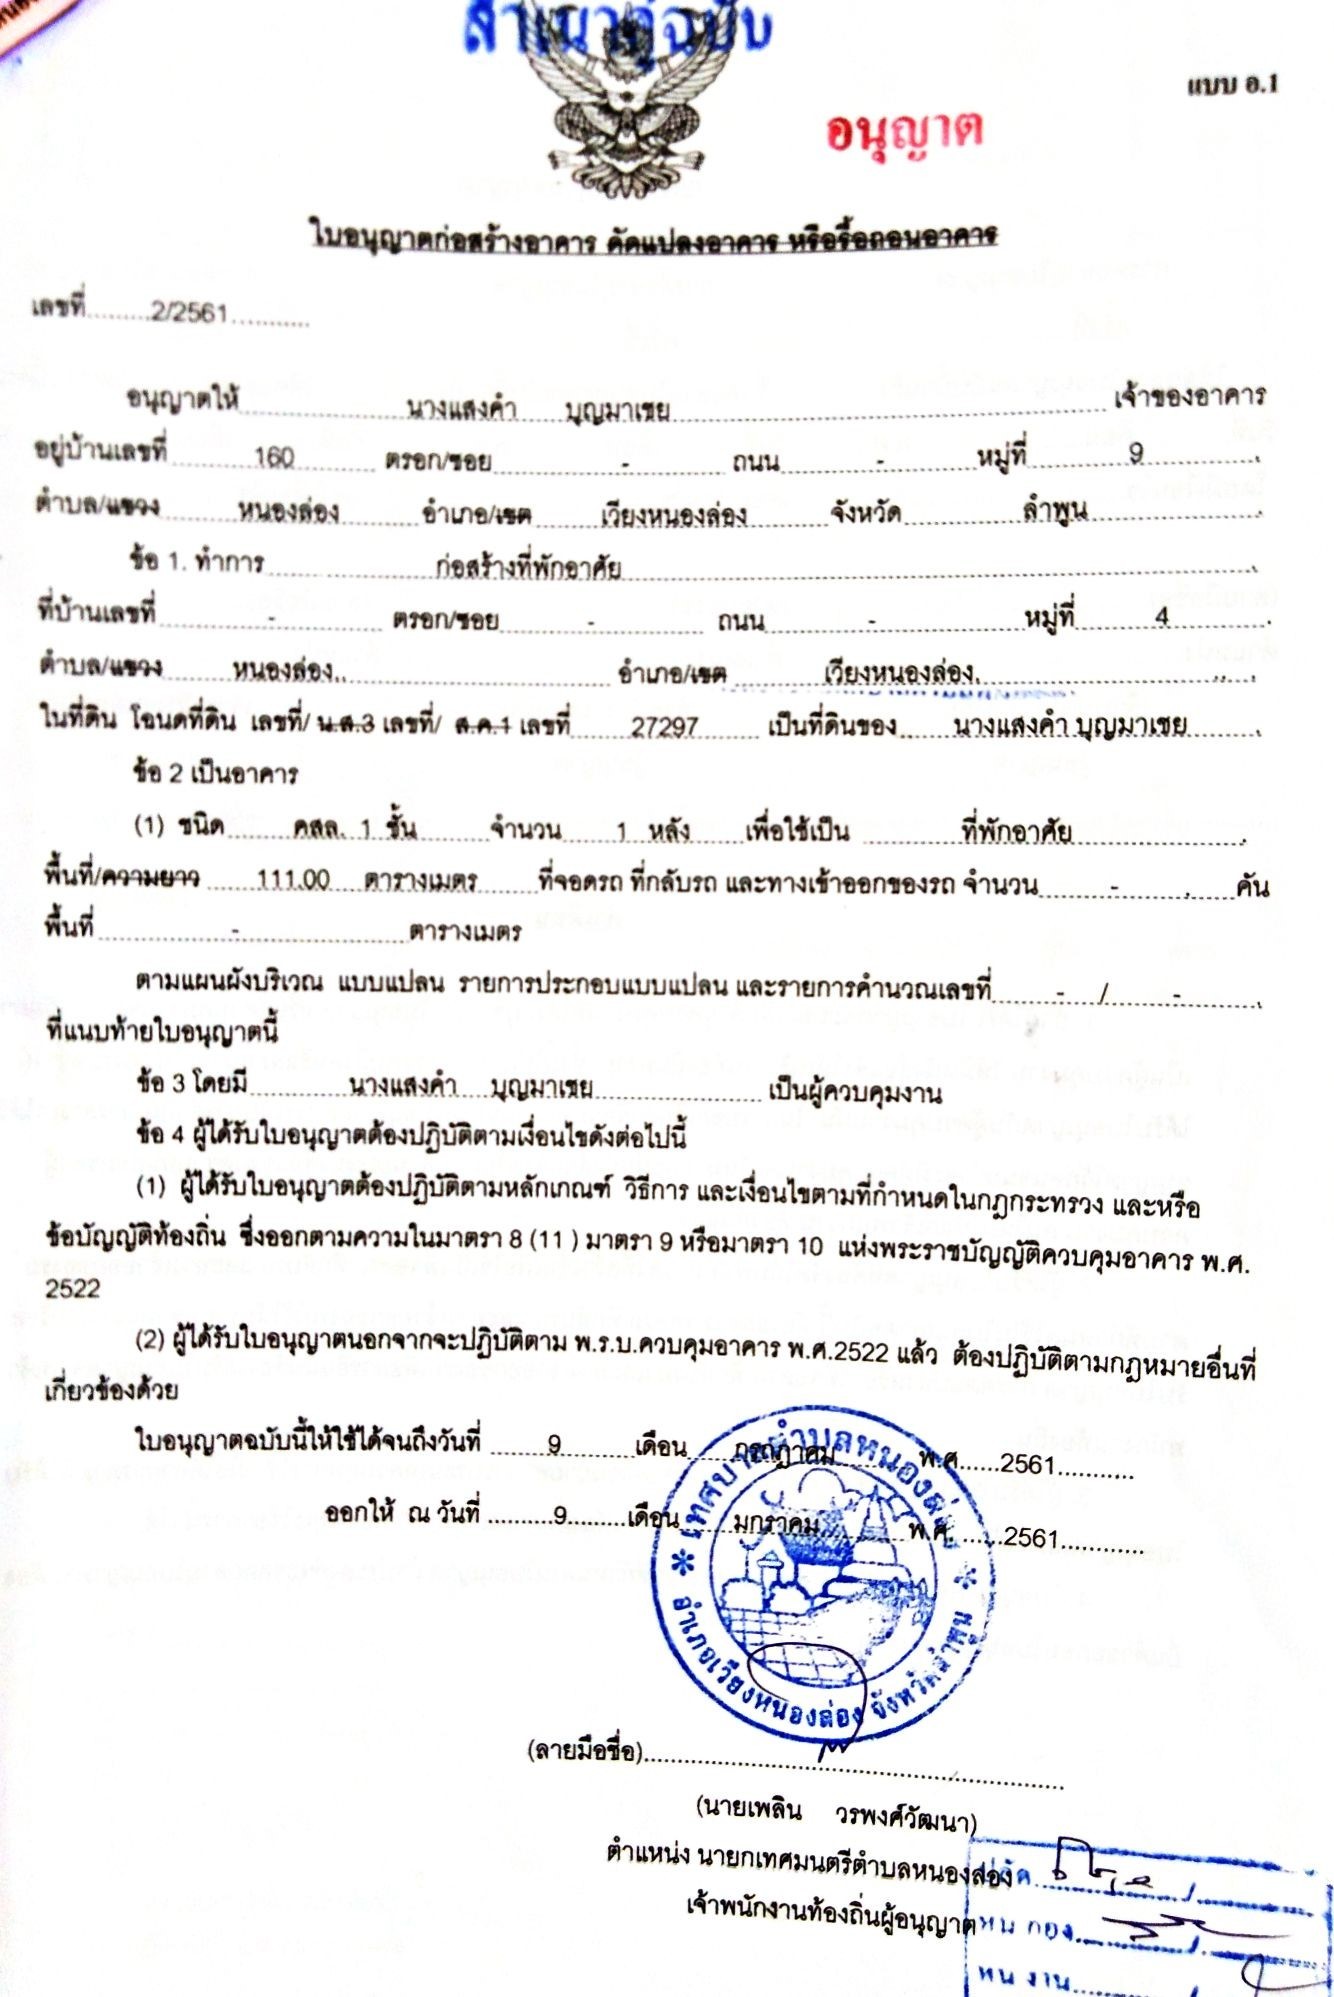 สำเนาคู่ฉบับ
แบบ อ.1
อนุญาต
ใบอนุญาตก่อสร้างอาคาร ดัดแปลงอาคาร หรือรื้อถอนอาคาร
เลขที่..........2/2561............
อนุญาตให้ นางแสงคำ บุญมาเชย เจ้าของอาคาร
อยู่บ้านเลขที่ 160 ตรอก/ซอย - ถนน - หมู่ที่ 9
ตำบล/แขวง หนองล่อง อำเภอ/เขต เวียงหนองล่อง จังหวัด ลำพูน
ข้อ 1. ทำการ ก่อสร้างที่พักอาศัย
ที่บ้านเลขที่ - ตรอก/ซอย - ถนน - หมู่ที่ 4
ตำบล/แขวง หนองล่อง อำเภอ/เขต เวียงหนองล่อง
ในที่ดิน โฉนดที่ดิน เลขที่/ น.ส.3 เลขที่/ ส.ค.1 เลขที่ 27297 เป็นที่ดินของ นางแสงคำ บุญมาเชย
ข้อ 2 เป็นอาคาร
(1) ชนิด คสล. 1 ชั้น จำนวน 1 หลัง เพื่อใช้เป็น ที่พักอาศัย
พื้นที่/ความยาว 111.00 ตารางเมตร ที่จอดรถ ที่กลับรถ และทางเข้าออกของรถ จำนวน - คัน
พื้นที่ - ตารางเมตร
ตามแผนผังบริเวณ แบบแปลน รายการประกอบแบบแปลน และรายการคำนวณเลขที่ - / -
ที่แนบท้ายใบอนุญาตนี้
ข้อ 3 โดยมี นางแสงคำ บุญมาเชย เป็นผู้ควบคุมงาน
ข้อ 4 ผู้ได้รับใบอนุญาตต้องปฏิบัติตามเงื่อนไขดังต่อไปนี้
(1) ผู้ได้รับใบอนุญาตต้องปฏิบัติตามหลักเกณฑ์ วิธีการ และเงื่อนไขตามที่กำหนดในกฎกระทรวง และหรือ
ข้อบัญญัติท้องถิ่น ซึ่งออกตามความในมาตรา 8 (11 ) มาตรา 9 หรือมาตรา 10 แห่งพระราชบัญญัติควบคุมอาคาร พ.ศ.
2522
(2) ผู้ได้รับใบอนุญาตนอกจากจะปฏิบัติตาม พ.ร.บ.ควบคุมอาคาร พ.ศ.2522 แล้ว ต้องปฏิบัติตามกฎหมายอื่นที่
เกี่ยวข้องด้วย
ใบอนุญาตฉบับนี้ให้ใช้ได้จนถึงวันที่ 9 เดือน กรกฎาคม พ.ศ. 2561
ออกให้ ณ วันที่ 9 เดือน มกราคม พ.ศ. 2561
เทศบาลตำบลหนองล่อง
อำเภอเวียงหนองล่อง จังหวัดลำพูน
(ลายมือชื่อ)
(นายเพลิน วรพงศ์วัฒนา)
ตำแหน่ง นายกเทศมนตรีตำบลหนองล่อง
เจ้าพนักงานท้องถิ่นผู้อนุญาต
ปลัด
หน กอง
หน งาน